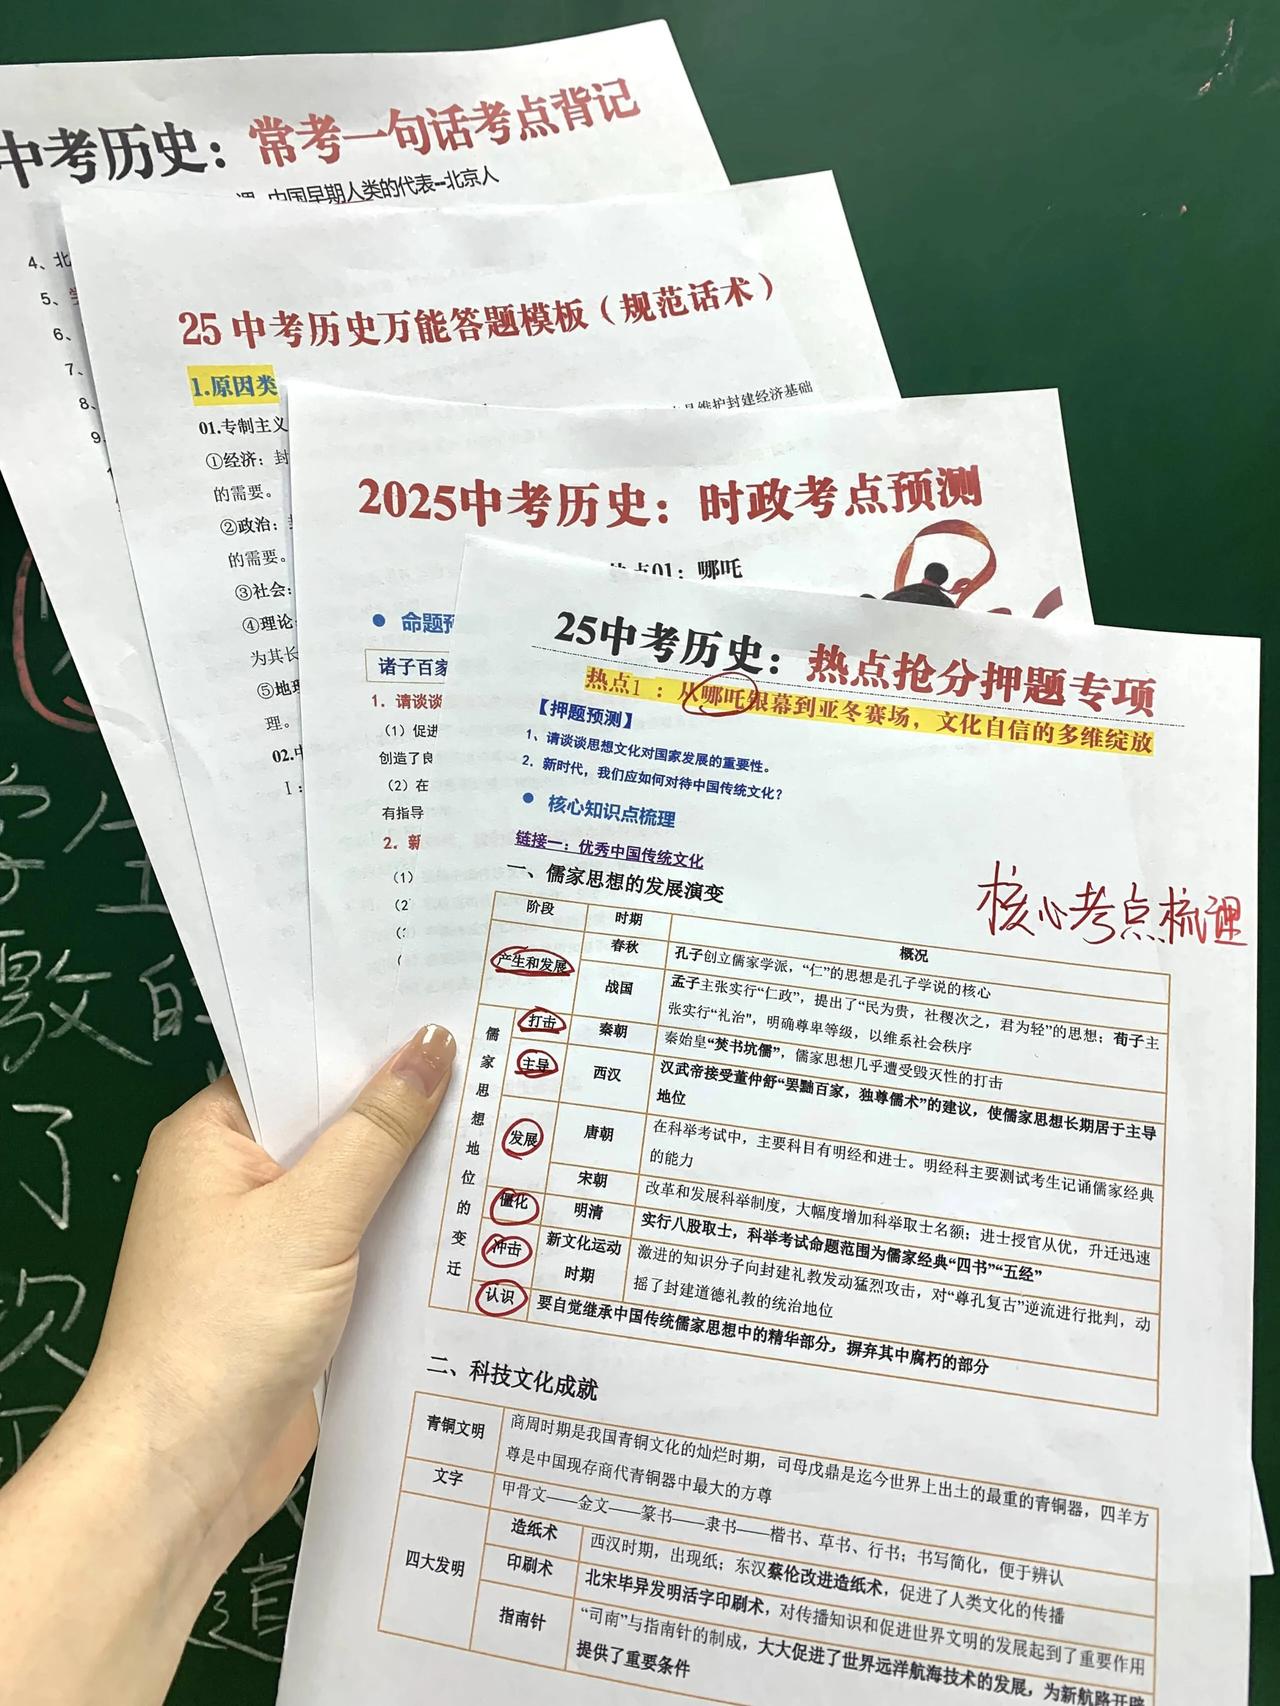 中考历史：常考一句话考点背记
中国早期人类的代表--北京人
4、北
5、
6、
7、
8、
9
25 中考历史万能答题模板（规范话术）
1.原因类
维护封建经济基础
01.专制主义
①经济：封
的需要。
②政治：
的需要。
③社会：
④理论
为其长
⑤地理
理。
02.中
I：
2025中考历史：时政考点预测
热点01：哪吒
命题预
诸子百家
1. 请谈谈
（1）促进
创造了良
（2）在
有指导
2. 新
（1）
（2
（
25中考历史：热点抢分押题专项
热点1 ：从哪吒银幕到亚冬赛场，文化自信的多维绽放
【押题预测】
1、请谈谈思想文化对国家发展的重要性。
2．新时代，我们应如何对待中国传统文化？
核心知识点梳理
链接一：优秀中国传统文化
核心考点梳理
一、儒家思想的发展演变
阶段 时期 概况
儒家思想地位的变迁
产生和发展 春秋 孔子创立儒家学派，“仁”的思想是孔子学说的核心
战国 孟子主张实行“仁政”，提出了“民为贵，社稷次之，君为轻”的思想；荀子主
张实行“礼治”，明确尊卑等级，以维系社会秩序
打击 秦朝 秦始皇“焚书坑儒”，儒家思想几乎遭受毁灭性的打击
主导 西汉 汉武帝接受董仲舒“罢黜百家，独尊儒术”的建议，使儒家思想长期居于主导
地位
发展 唐朝 在科举考试中，主要科目有明经和进士。明经科主要测试考生记诵儒家经典
的能力
宋朝 改革和发展科举制度，大幅度增加科举取士名额；进士授官从优，升迁迅速
僵化 明清 实行八股取士，科举考试命题范围为儒家经典“四书”“五经”
冲击 新文化运动 激进的知识分子向封建礼教发动猛烈攻击，对“尊孔复古”逆流进行批判，动
时期 摇了封建道德礼教的统治地位
认识 要自觉继承中国传统儒家思想中的精华部分，摒弃其中腐朽的部分
二、科技文化成就
青铜文明 商周时期是我国青铜文化的灿烂时期，司母戊鼎是迄今世界上出土的最重的青铜器，四羊方
尊是中国现存商代青铜器中最大的方尊
文字 甲骨文——金文——篆书——隶书——楷书、草书、行书；书写简化，便于辨认
四大发明 造纸术 西汉时期，出现纸；东汉蔡伦改进造纸术，促进了人类文化的传播
印刷术 北宋毕昇发明活字印刷术，对传播知识和促进世界文明的发展起到了重要作用
指南针 “司南”与指南针的制成，大大促进了世界远洋航海技术的发展，为新航路开辟
提供了重要条件
学生
的
了